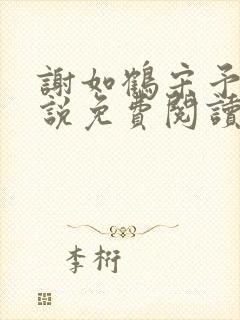 謝如鶴宋予
說免費閱讀
李桁